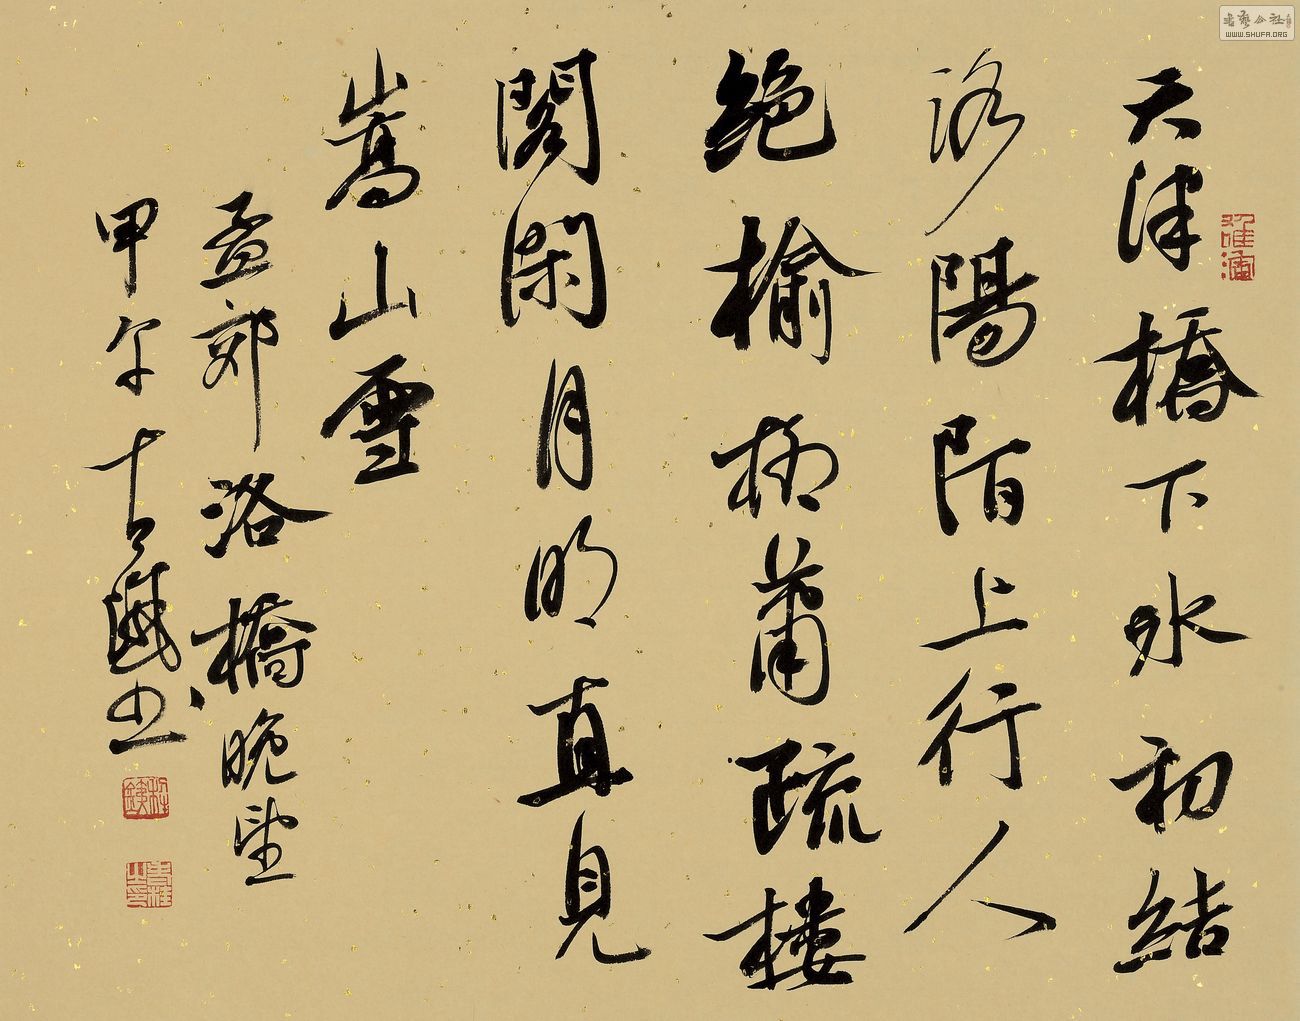 天津橋下氷初結
洛陽陌上行人
絕榆柳蕭疏樓
閣閑月明直見
嵩山雪
孟郊洛橋晚望
甲午
書藝公社
WWW.SHUFA.ORG